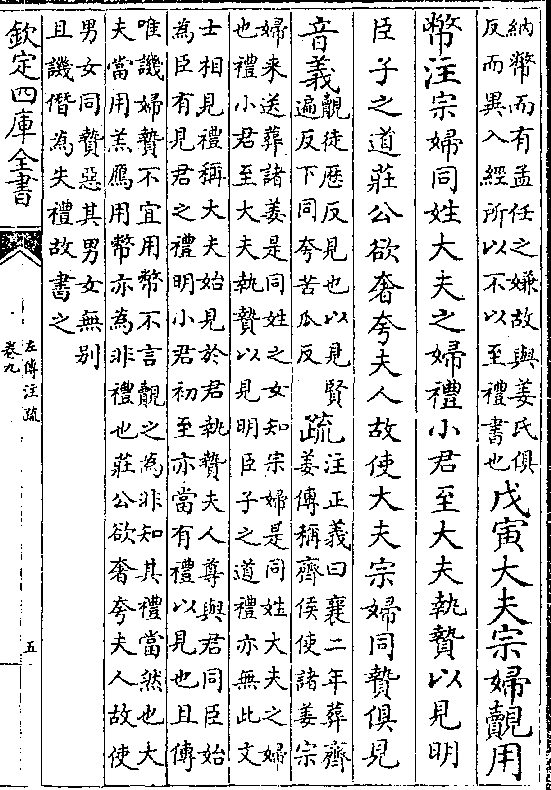 納幣而有孟任之嫌故與姜氏俱
反而異入經所以不以至禮書也
戊寅大夫宗婦覿用
幣注宗婦同姓大夫之婦禮小君至大夫執贄以見明
臣子之道莊公欲奢夸夫人故使大夫宗婦同贄俱見
音義
覿徒歷反見也以見賢
遍反下同夸苦瓜反
疏
注正義曰襄二年葬齊
姜傳稱齊侯使諸姜宗
婦来送葬諸姜是同姓之女知宗婦是同姓大夫之婦
也禮小君至大夫執贄以見明臣子之道禮亦無此文
士相見禮稱大夫始見於君執贄夫人尊與君同臣始
為臣有見君之禮明小君初至亦當有禮以見也且傳
唯譏婦贄不宜用幣不言覿之為非知其禮當然也大
夫當用羔鴈用幣亦為非禮也莊公欲奢夸夫人故使
男女同贄惡其男女無别
且譏僭為失禮故書之
欽定四庫全書
左傳注疏
卷九
五